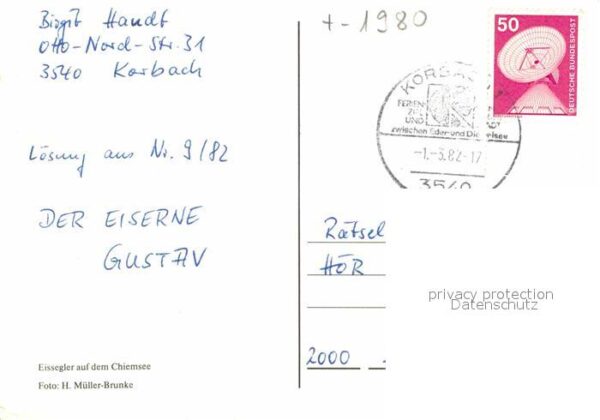 Birgit Handt
Otto-Nord-Str. 31
3540 Korbach
Lösung aus Nr. 9/82
DER EISERNE
GUSTAV
Eissegler auf dem Chiemsee
Foto: H. Müller-Brunke
+-1980
50
DEUTSCHE BUNDESPOST
FERIEN-
UND
zwischen Eder-und
-1.-3.82-17
3540
Rätsel
HÖR
2000
privacy protection
Datenschutz